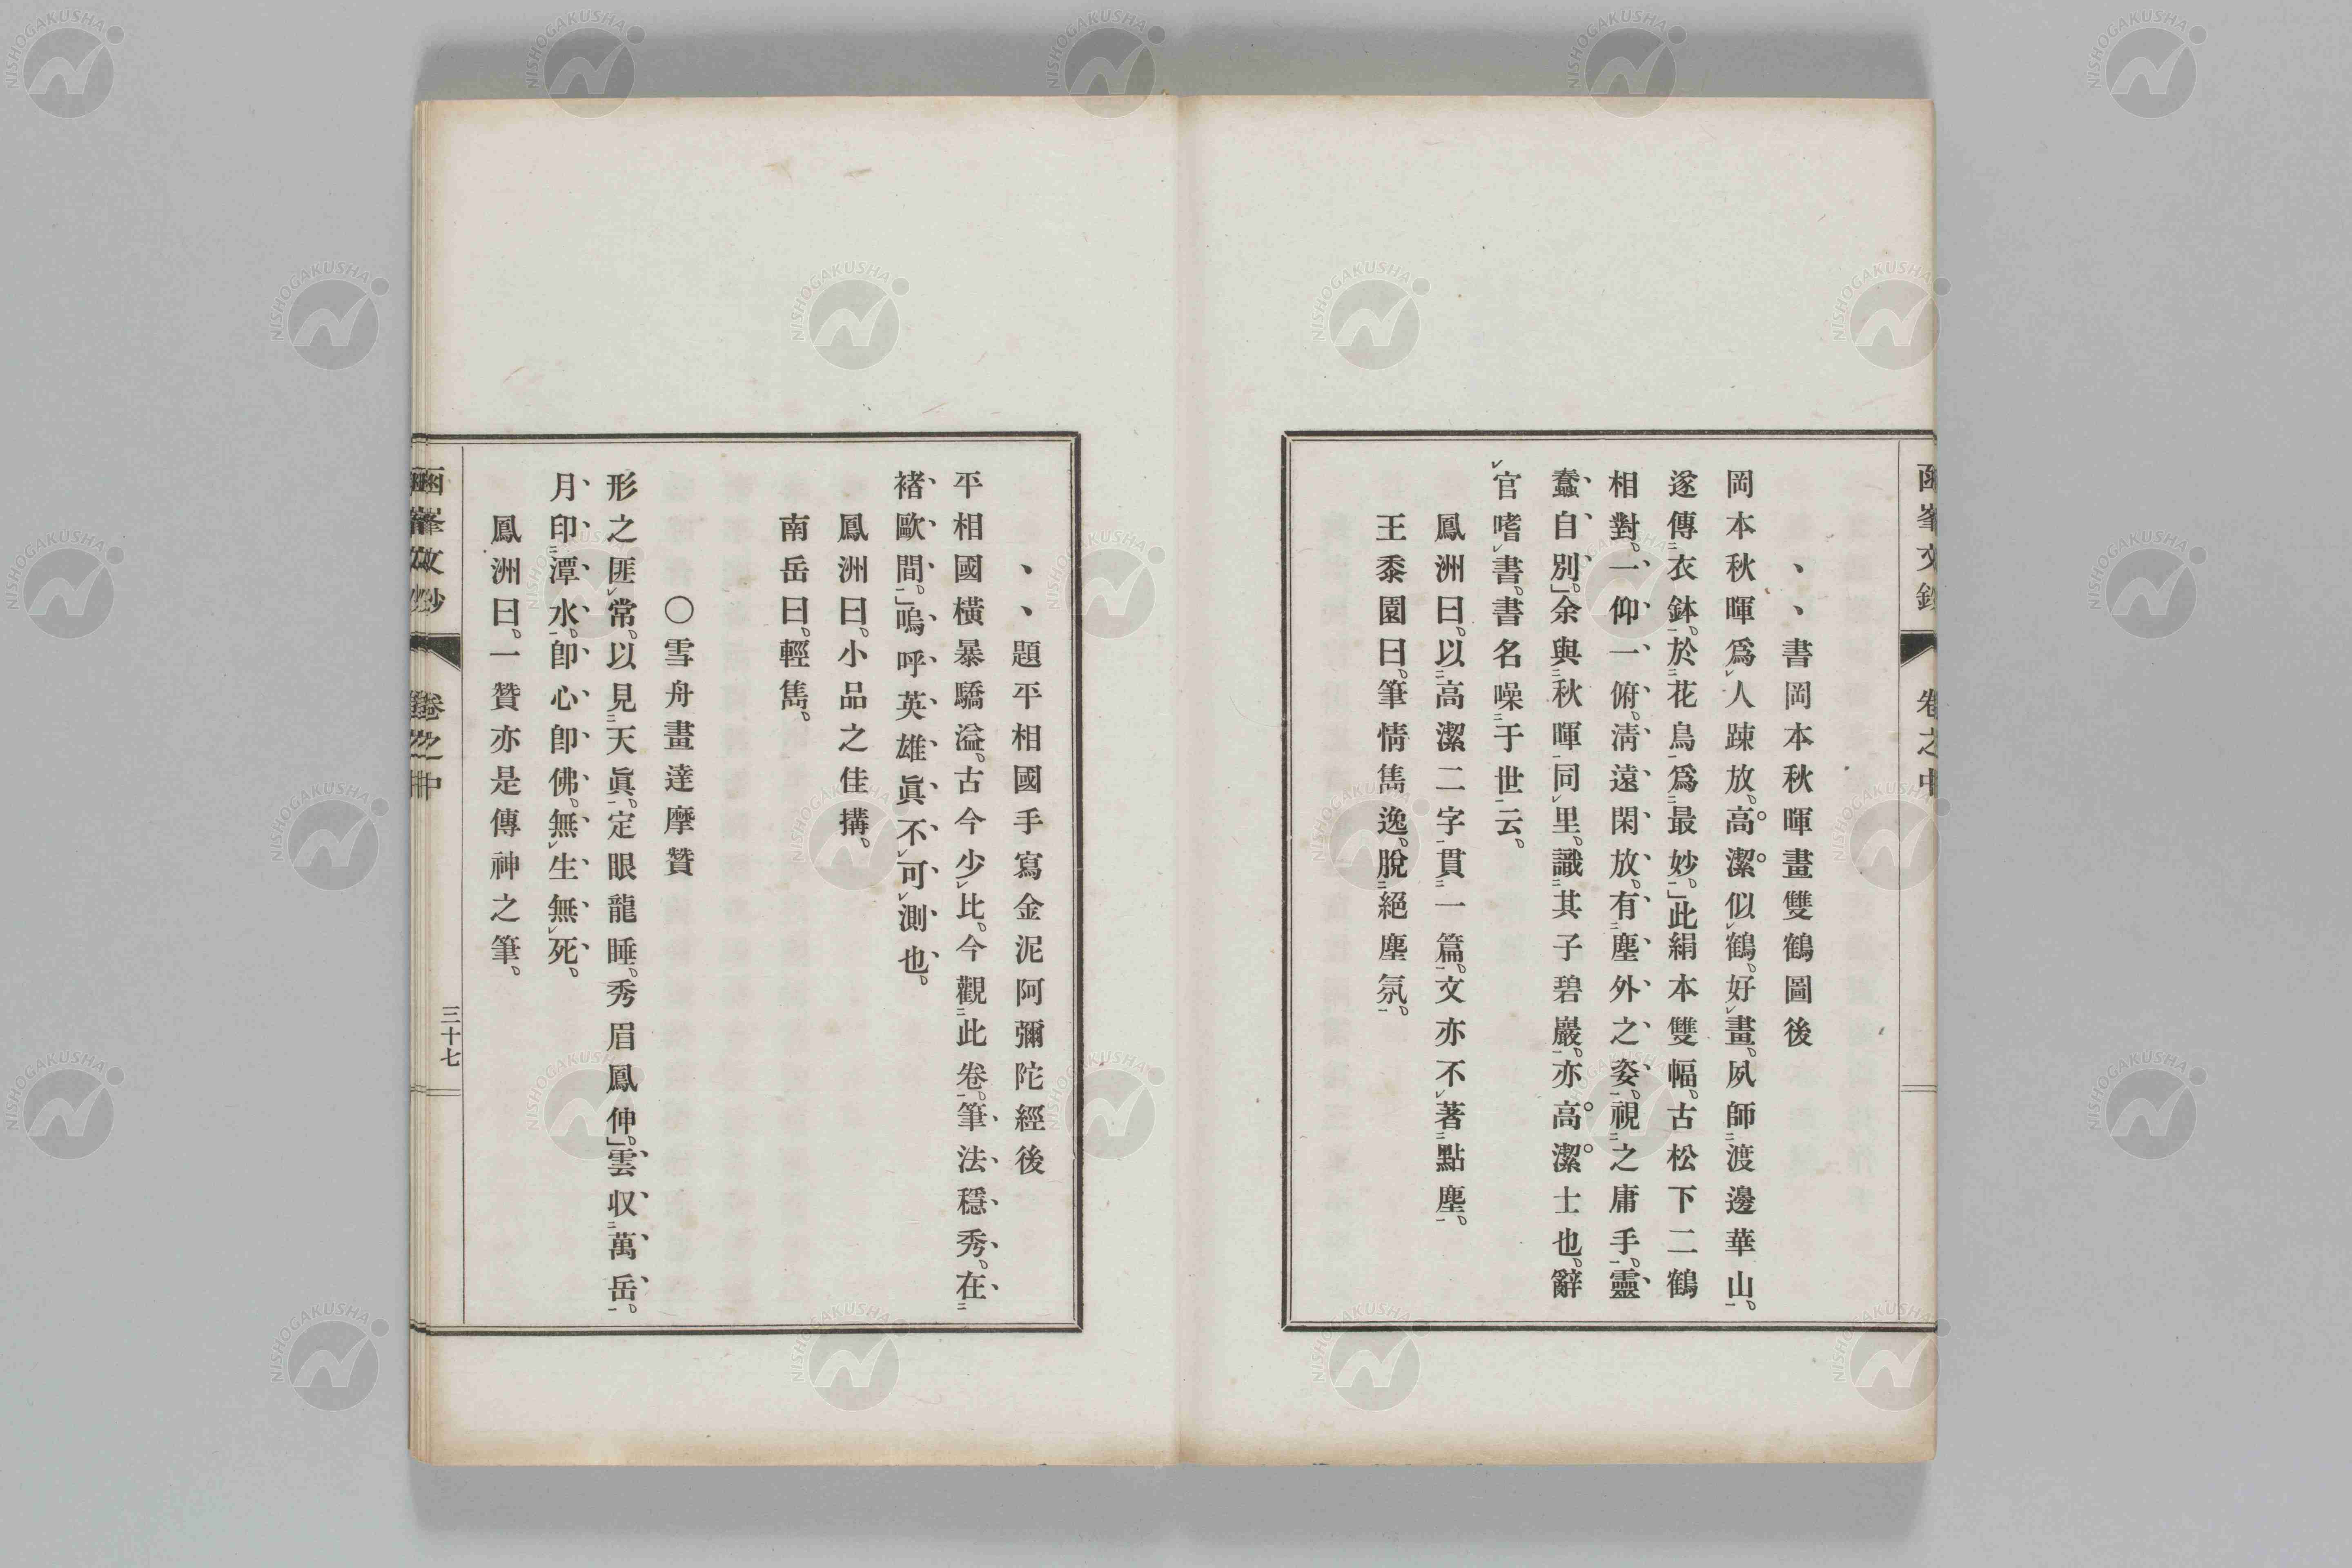 、、書岡本秋暉畫雙鶴圖後
岡本秋暉爲㆑人踈放。高潔似㆑鶴。好㆑畫。夙師㆓渡邊華山㆒。
遂傳㆓衣鉢㆒。於㆓花鳥㆒爲㆓最妙㆒。」此絹本雙幅。古松下二鶴
相對。一仰一俯。淸遠閑放。有㆓塵外之姿㆒。視㆓之庸手㆒。靈
蠢自別。」余與㆓秋暉㆒同㆑里。識㆓其子碧巖㆒。亦高潔士也。辭
㆑官嗜㆑書。書名噪㆓于世㆒云。
鳳洲曰。以㆓高潔二字㆒貫㆓一篇㆒。文亦不㆑著㆓點塵㆒。
王黍園曰。筆情雋逸。脫㆓絕塵氛㆒。
、、題平相國手寫金泥阿彌陀經後
平相國橫暴驕溢。古今少㆑比。今觀㆓此卷㆒。筆法穩秀。在㆓
褚歐間㆒。」嗚呼英雄眞不㆑可㆑測也。
鳳洲曰。小品之佳搆。
南岳曰。輕雋。
〇雪舟畫達摩贊
形之匪㆑常。以見㆓天眞㆒。定眼龍睡。秀眉鳳伸。」雲收㆓萬岳㆒。
月印㆓潭水㆒。卽心卽佛。無㆑生無㆑死。
鳳洲曰。一贊亦是傳神之筆。
卷之中
三十七